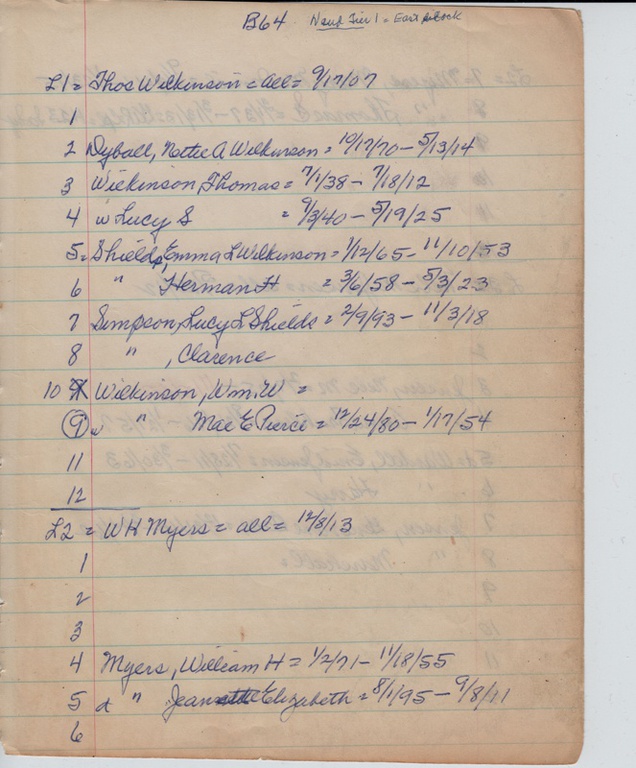 B64 New Tier 1 = East block
L1 = Thos Wilkinson = all = 9/17/07
1
2 Dyball, Nettie A Wilkinson = 10/17/70 - 5/13/14
3 Wilkinson, Thomas = 7/1/38 - 7/18/12
4 w Lucy S = 9/3/40 - 5/19/25
5 = Shields, Emma L Wilkinson = 1/12/65 - 11/10/53
6 " Herman H = 3/6/58 - 5/3/23
7 Simpson, Lucy L Shields = 2/9/93 - 11/3/18
8 " , Clarence
10 Wilkinson, Wm. W =
9 w " Mae E Pierce = 12/24/80 - 1/17/54
11
12
L2 = W H Myers = all = 12/8/13
1
2
3
4 Myers, William H = 1/2/71 - 11/18/55
5 d " Jean Elizabeth = 8/1/95 - 9/8/11
6